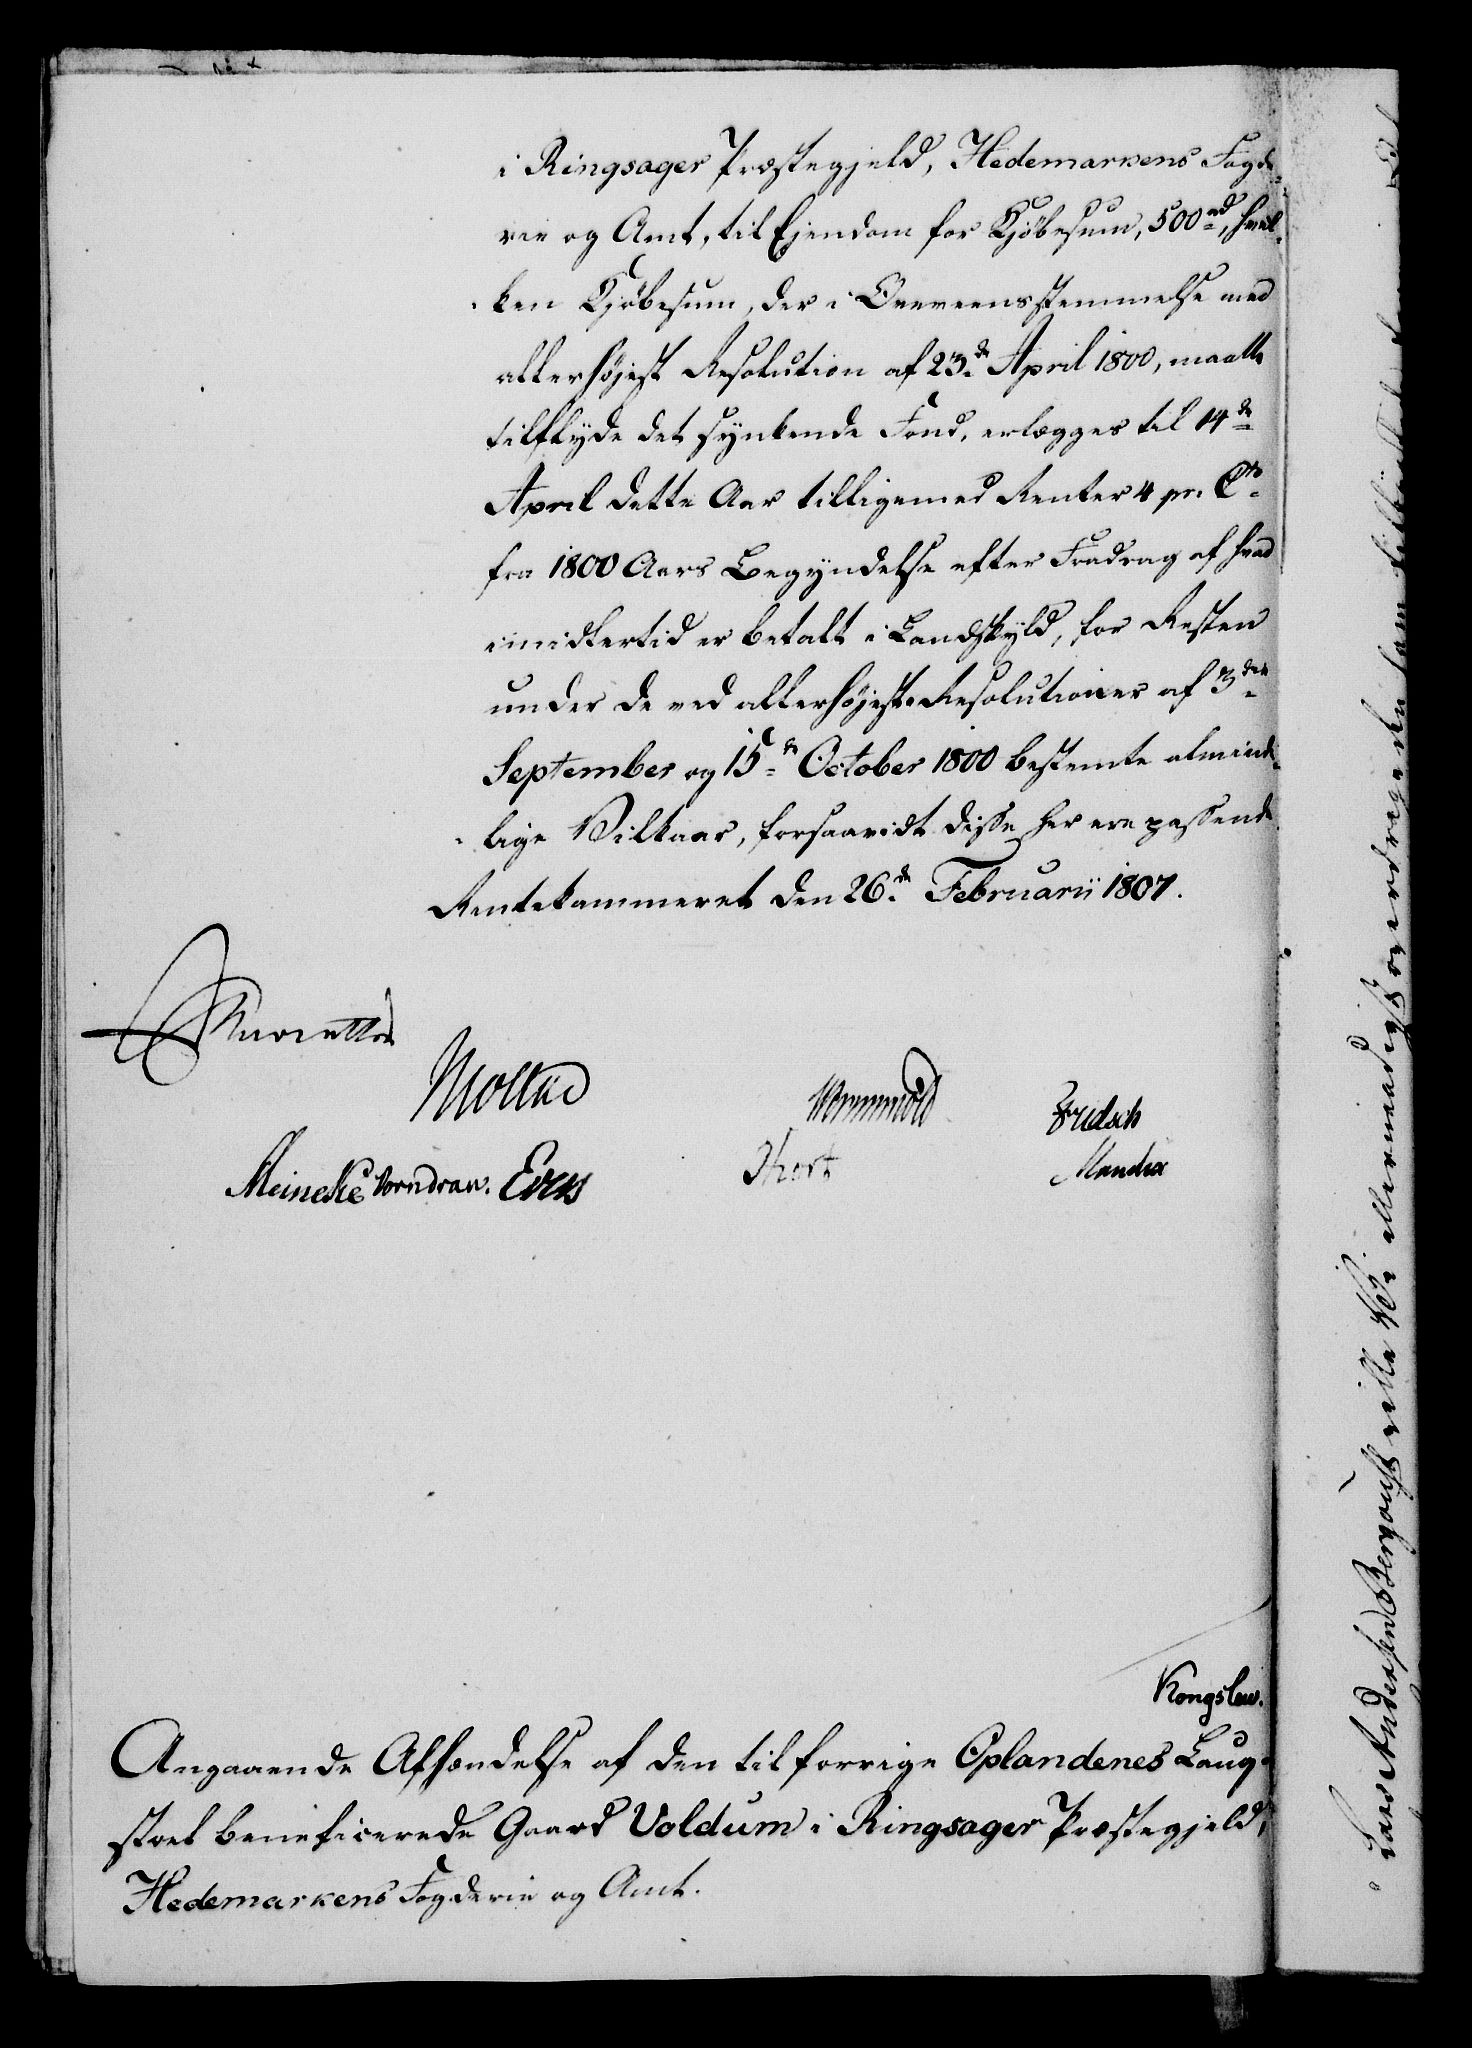 i Ringsager Præstegjeld, Hedemarkens Fogde-
rie og Amt, til Ejendom for Kjöbesum, 500 rd, hvil-
ken Kjöbesum, der i Overeensstemmelse med
allerhöjest Resolution af 23de April 1800, maatte
tilflyde det synkende Fond, erlægges til 14de
April dette Aar tilligemed Renter 4 pr. Cto
fra 1800 Aars Begyndelse efter Fradrag af hvad
imidlertid er betalt i Landskyld, for Resten
under de ved allerhöjeste Resolutioner af 3die
September og 15de October 1800 bestemte alminde-
lige Vilkaar, forsaavidt disse her ere passende
Rentekammeret den 26de Februarii 1807.
Moltke
Wormskiold
Fridsch
Meincke Vorndran. Evers
Thort
Mandix
Kongslew.
Angaaende Afhændelse af den til forrige Oplandenes Laug-
stoel beneficerede Gaard Voldum i Ringsager Præstegjeld,
Hedemarkens Fogderie og Amt.
Lars Andersen Bergqust ville Vi allernaadigst og